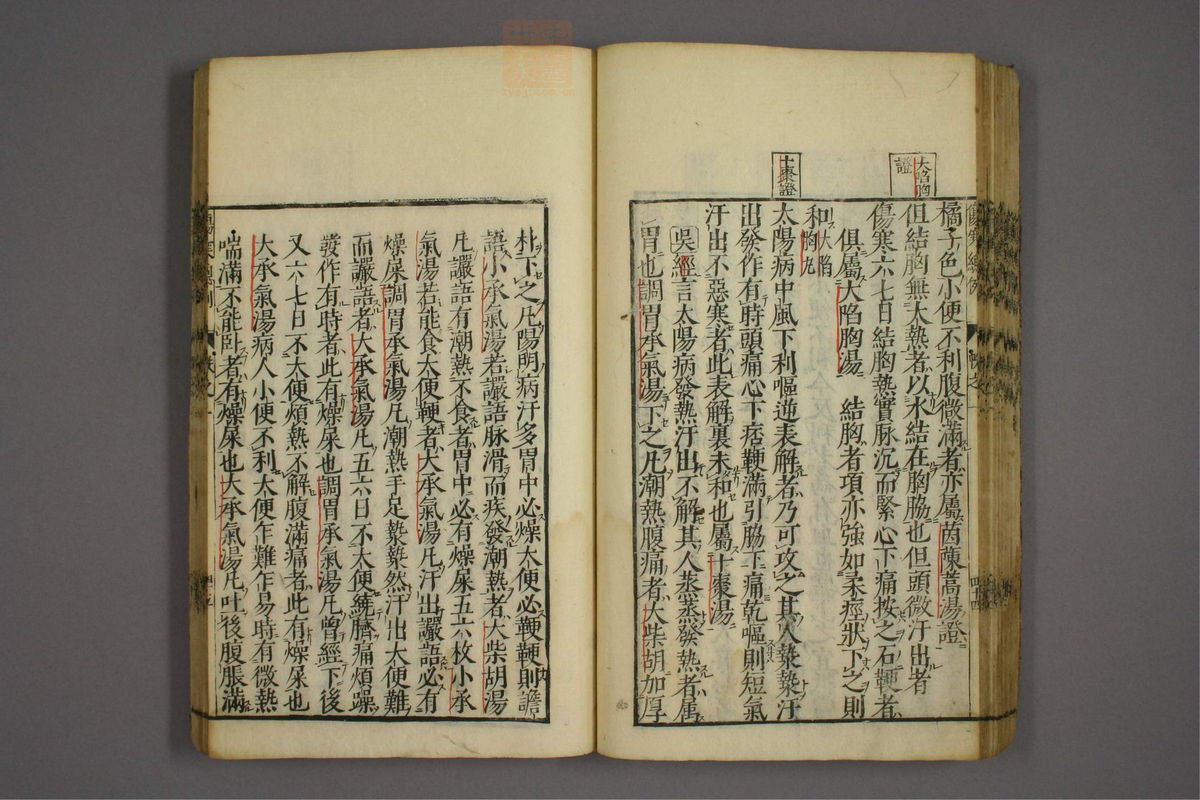 大陷胸
證
十棗證
橘子色小便不利腹微滿者亦屬茵蔯蒿湯證
但結胸無大熱者以水結在胸脇也但頭微汗出者
傷寒六七日結胸熱實脉沉而緊心下痛按之石鞕者
俱屬大陷胸湯　結胸者項亦強如柔痓狀下之則
和大陷胸丸
太陽病中風下利嘔逆表解者乃可攻之其人漐漐汗
出發作有時頭痛心下痞鞕滿引脇下痛乾嘔則短氣
汗出不惡寒者此表解裏未和也屬十棗湯
吳經言太陽病發熱汗出不解其人蒸蒸發熱者属
胃也調胃承氣湯下之凡潮熱腹痛者大柴胡加厚
朴下之凡陽明病汗多胃中必燥大便必鞕鞕則譫
語小承氣湯若讝語脉滑而疾發潮熱者大柴胡湯
凡讝語有潮熱不食者胃中必有燥屎五六枚小承
氣湯若能食大便鞕者大承氣湯凡汗出讝語必有
燥屎調胃承氣湯凡潮熱手足漐漐然汗出大便難
而讝語者大承氣湯凡五六日不大便繞臍痛煩躁
發作有時者此有燥屎也調胃承氣湯凡曾經下後
又六七日不大便煩熱不解腹滿痛者此有燥屎也
大承氣湯病人小便不利大便乍難乍易時有微熱
喘滿不能卧者有燥屎也大承氣湯凡吐後腹脹滿